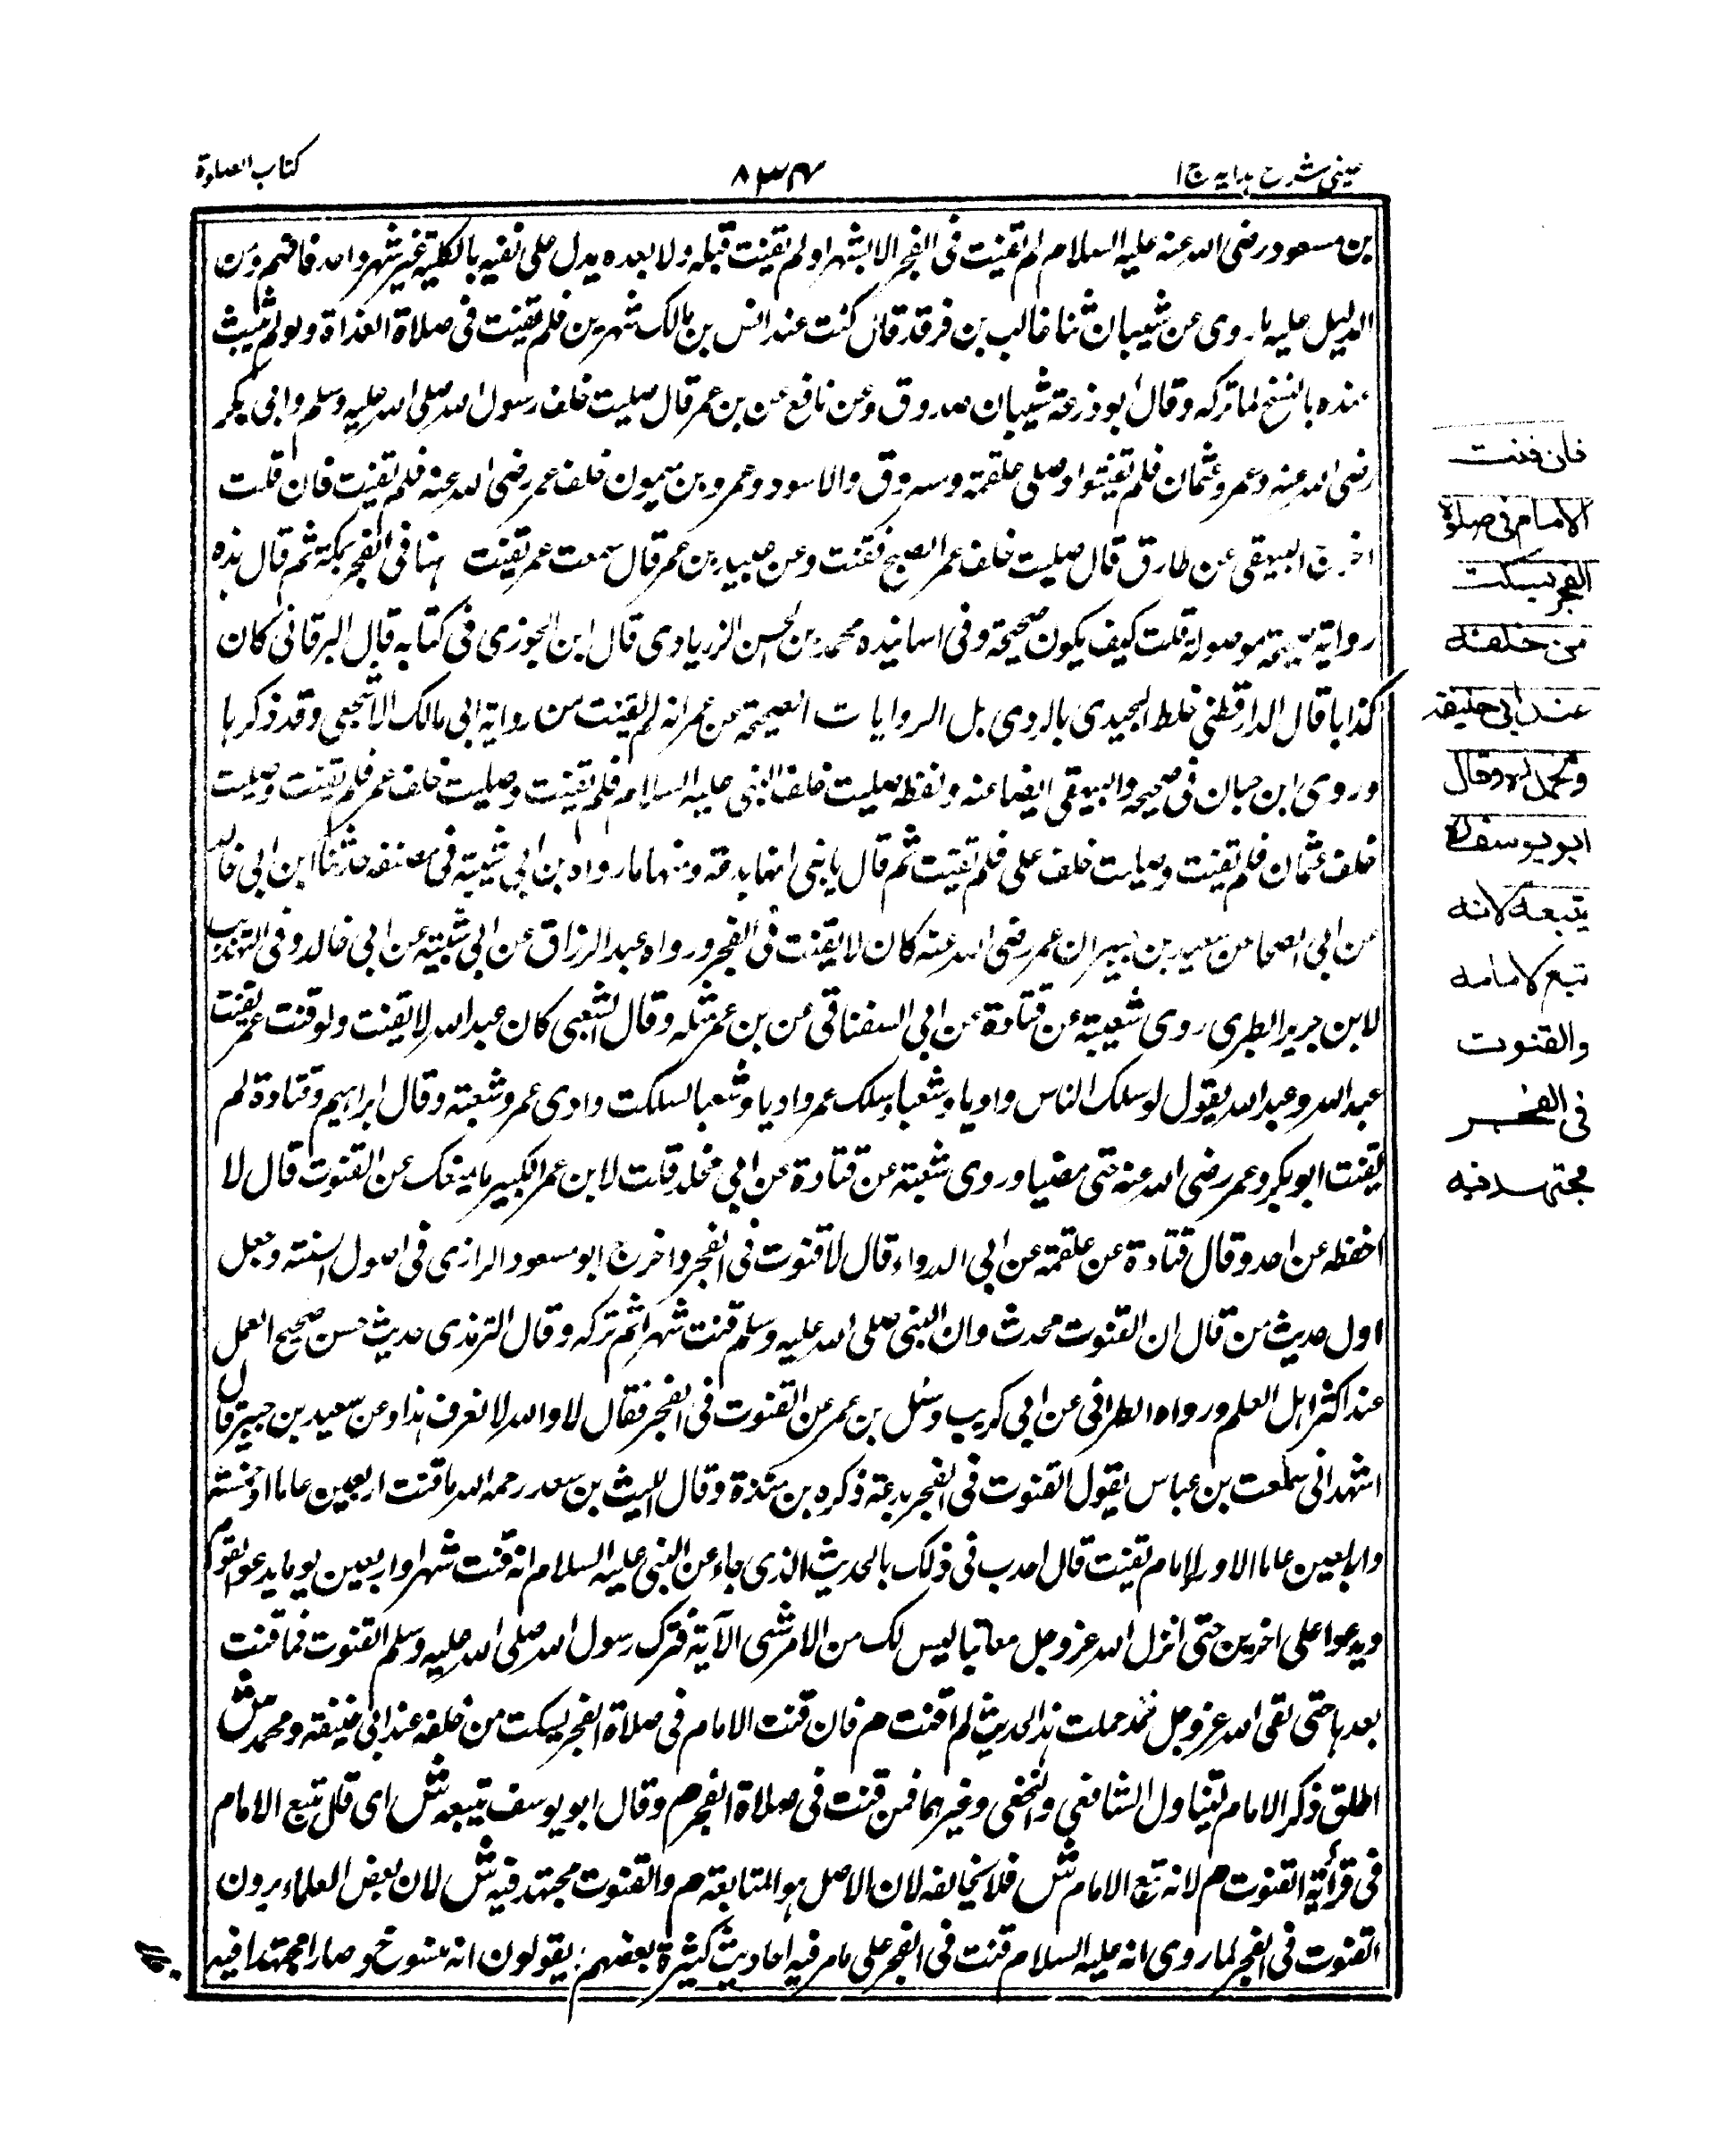 عینی شرح ہدایہ ج ۱
۸۳۴
کتاب الصلوة
بن مسعود رضی اللہ عنہ علیہ السلام لم یقنت فی الفجر الا شہرا ولم یقنت قبلہ ولا بعدہ یدل علی نفیہ بالکلیۃ غیر شہر واحد فافہم ومن
الدلیل علیہ ما روی عن شیبان ثنا غالب بن فرقد قال کنت عند انس بن مالک شہرین فلم یقنت فی صلاۃ الغداۃ ولو لم یثبت
عندہ بالنسخ لما ترکہ وقال ابو ذرعۃ شیبان صدوق وعن نافع عن بن عمر قال صلیت خلف رسول اللہ صلی اللہ علیہ وسلم وابی بکر
رضی اللہ عنہ وعمر وعثمان فلم یقنتوا وصلی علقمۃ ومسروق والاسود وعمرو بن میمون خلف عمر رضی اللہ عنہ فلم یقنت فان قلت
اخرج البیہقی عن طارق قال صلیت خلف عمر الصبح فقنت وعن عبید بن عمر قال سمعت عمر یقنت ہنا فی الفجر بمکۃ ثم قال ہذہ
روایۃ صحیحۃ موصولۃ قلت کیف یکون صحیحۃ وفی اسانیدہ محمد بن الحسن الزیادی قال ابن الجوزی فی کتابہ قال البرقانی کان
کذابا قال الدارقطنی خلط الجیدی بالردی بل الروایات الصحیحۃ عن عمر انہ لم یقنت من روایۃ ابی مالک الاشجعی وقد ذکرہا
وروی ابن حبان فی صحیحہ والبیہقی ایضا عنہ ولفظہ صلیت خلف النبی علیہ السلام فلم یقنت وصلیت خلف عمر فلم یقنت وصلیت
خلف عثمان فلم یقنت وصلیت خلف علی فلم یقنت ثم قال یا بنی انہا بدعۃ ومنہا ما رواہ بن ابی شیبۃ فی مصنفہ حدثنا ابن ابی خالد
عن ابی الصحا عن سعید بن جبیر ان عمر رضی اللہ عنہ کان لا یقنت فی الفجر ورواہ عبد الرزاق عن ابی شیبۃ عن ابی خالد وفی التہذیب
لابن جریر الطبری روی شعبۃ عن قتادۃ عن ابی السفناقی عن بن عمر مثلہ وقال الشعبی کان عبد اللہ لا یقنت ولو قنت عمر یقنت
عبد اللہ وعبد اللہ یقول لو سلک الناس وادیا وشعبا وسلک عمر وادیا وشعبا لسلکت وادی عمر وشعبتہ وقال ابراہیم وقتادۃ لم
یقنت ابو بکر وعمر رضی اللہ عنہ حتی مضیا وروی شعبۃ عن قتادۃ عن ابی مخلد قلت لابن عمر الکبیر ما یمنعک عن القنوت قال لا
احفظہ عن احد وقال قتادۃ عن علقمۃ عن ابی الدرداء قال لا قنوت فی الفجر واخرج ابو مسعود الرازی فی اصول السنۃ وجعل
اول حدیث من قال ان القنوت محدث وان النبی صلی اللہ علیہ وسلم قنت شہرا ثم ترکہ وقال الترمذی حدیث حسن صحیح العمل
عند اکثر اہل العلم ورواہ الطبرانی عن ابی کریب وسئل بن عمر عن القنوت فی الفجر فقال لا واللہ لا نعرف ہذا وعن سعید بن جبیر قال
اشہد انی سمعت بن عباس یقول القنوت فی الفجر بدعۃ ذکرہ بن مندۃ وقال اللیث بن سعد رحمہ اللہ ما قنت اربعین عاما او خمسۃ
واربعین عاما الا وراء امام یقنت قال احدب فی ذلک بالحدیث الذی جاء عن النبی علیہ السلام انہ قنت شہرا واربعین یوما یدعو لقوم
ویدعوا علی اخرین حتی انزل اللہ عزوجل معاتبا لیس لک من الامر شی الآیۃ فترک رسول اللہ صلی اللہ علیہ وسلم القنوت فما قنت
بعدہا حتی لقی اللہ عزوجل فمذ حملت ہذا الحدیث لم اقنت م فان قنت الامام فی صلاۃ الفجر یسکت من خلفہ عند ابی حنیفۃ ومحمد ش
اطلق ذکر الامام لیتناول الشافعی والنخعی وغیرہما فمن قنت فی صلاۃ الفجر م وقال ابو یوسف یتبعہ ش ای قال یتبع الامام
فی قرأۃ القنوت م لانہ تبع الامام ش فلا یخالفہ لان الاصل ہو المتابعۃ م والقنوت مجتہد فیہ ش لان بعض العلماء یرون
القنوت فی الفجر لما روی انہ علیہ السلام قنت فی الفجر علی ما مر فیہ احادیث کثیرۃ بعضہم یقولون انہ منسوخ وصار مجتہدا فیہ
فان قنت
الامام فی صلوة
الفجر یسکت
من خلفه
عند ابی حنیفة
ومحمد وقال
ابو یوسف
یتبعه لانه
تبع لامامه
والقنوت
فی الفجر
مجتهد فیه